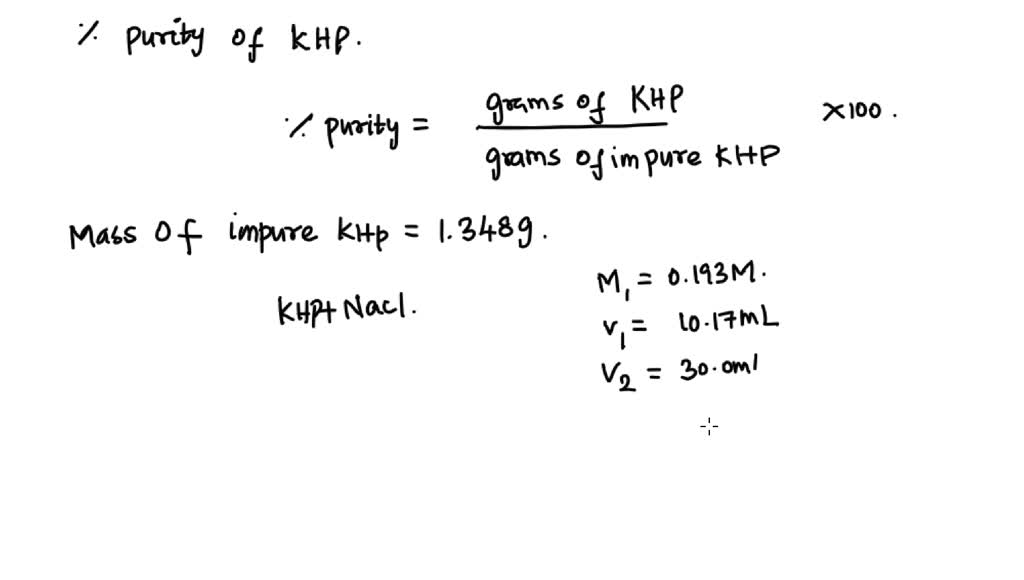 % purity of KHP.
% purity = grams of KHP / grams of impure KHP ×100.
Mass Of impure KHp = 1.348g.
KHP+ Nacl.
M₁ = 0.193M.
V₁ = 10.17mL
V₂ = 30.0ml